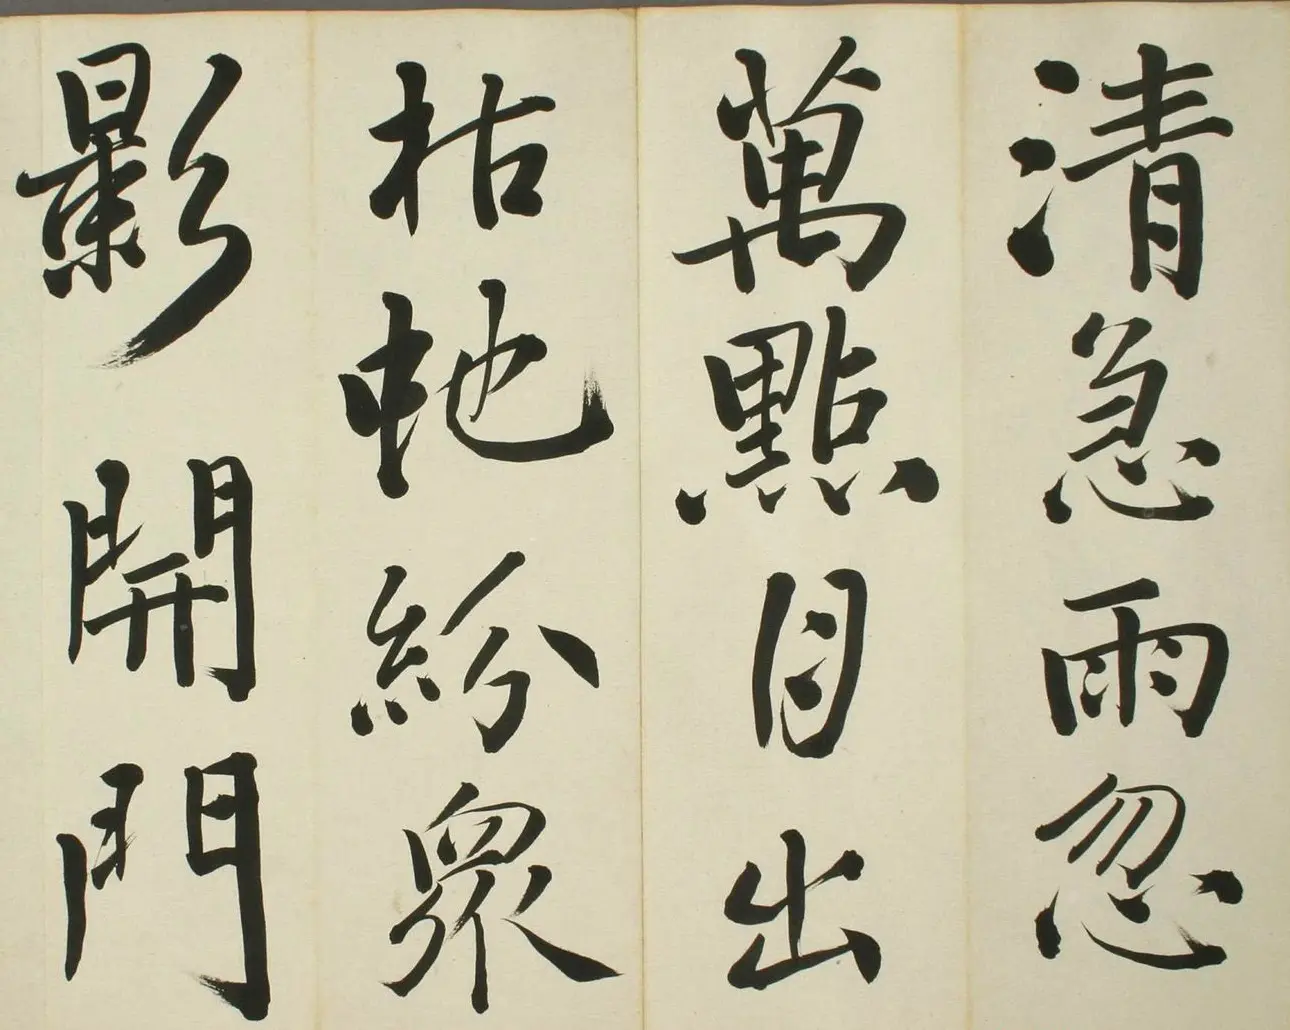 清急雨忽
萬點目出
枯虵紛衆
影開門